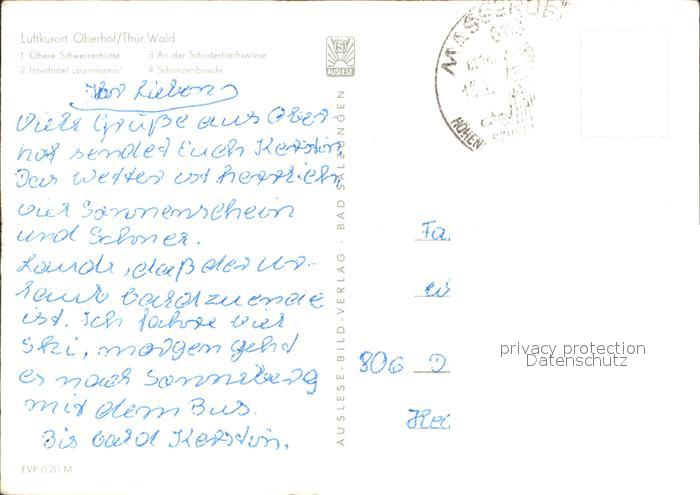 Luftkurort Oberhof/Thür. Wald
1 Obere Schweizerhütte 3 An der Schuderbachswiese
2 Interhotel „panorama" 4 Schanzenbaude
Ihr Lieben
Viele Grüße aus Ober-
hof sendet Euch Kerstin.
Das Wetter ist herrlich
viel Sonnenschein
und Schnee.
daß der Ur-
laub bald zuende
ist. Ich fahre viel
Ski, morgen geht
es nach Sonneberg
mit dem Bus.
Bis bald Kerstin.
EVP 0,20 M
AUSLESE-BILD-VERLAG · BAD SALZUNGEN
AUSLESE
HOHEN
Fa.
806 D
privacy protection
Datenschutz